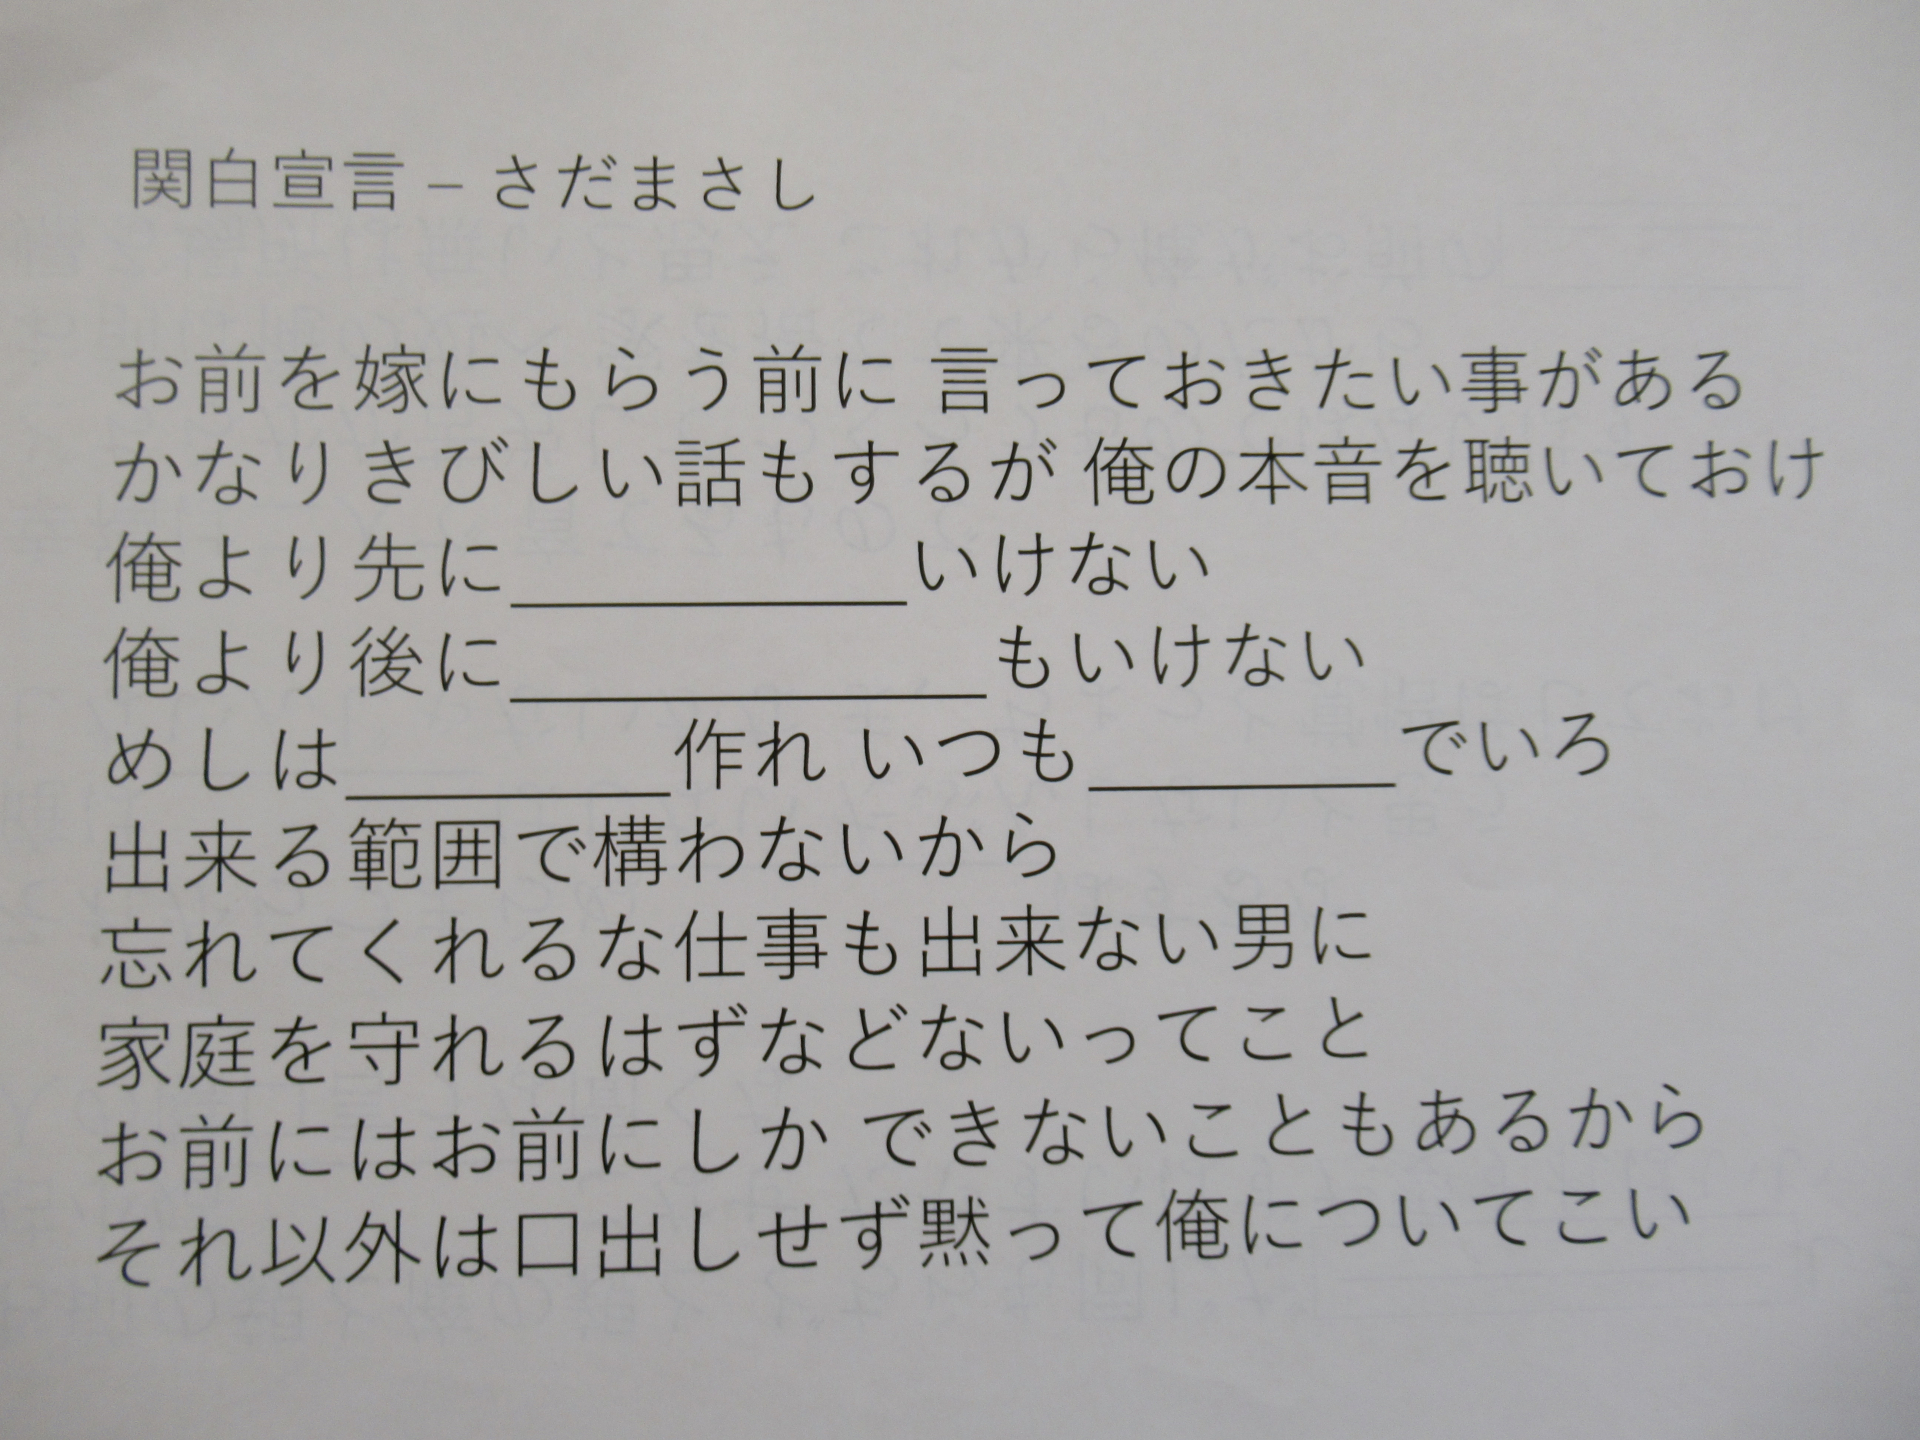 関白宣言 – さだまさし
お前を嫁にもらう前に 言っておきたい事がある
かなりきびしい話もするが 俺の本音を聴いておけ
俺より先に＿＿＿＿＿いけない
俺より後に＿＿＿＿＿＿もいけない
めしは＿＿＿＿作れ いつも＿＿＿＿でいろ
出来る範囲で構わないから
忘れてくれるな仕事も出来ない男に
家庭を守れるはずなどないってこと
お前にはお前にしか できないこともあるから
それ以外は口出しせず黙って俺についてこい